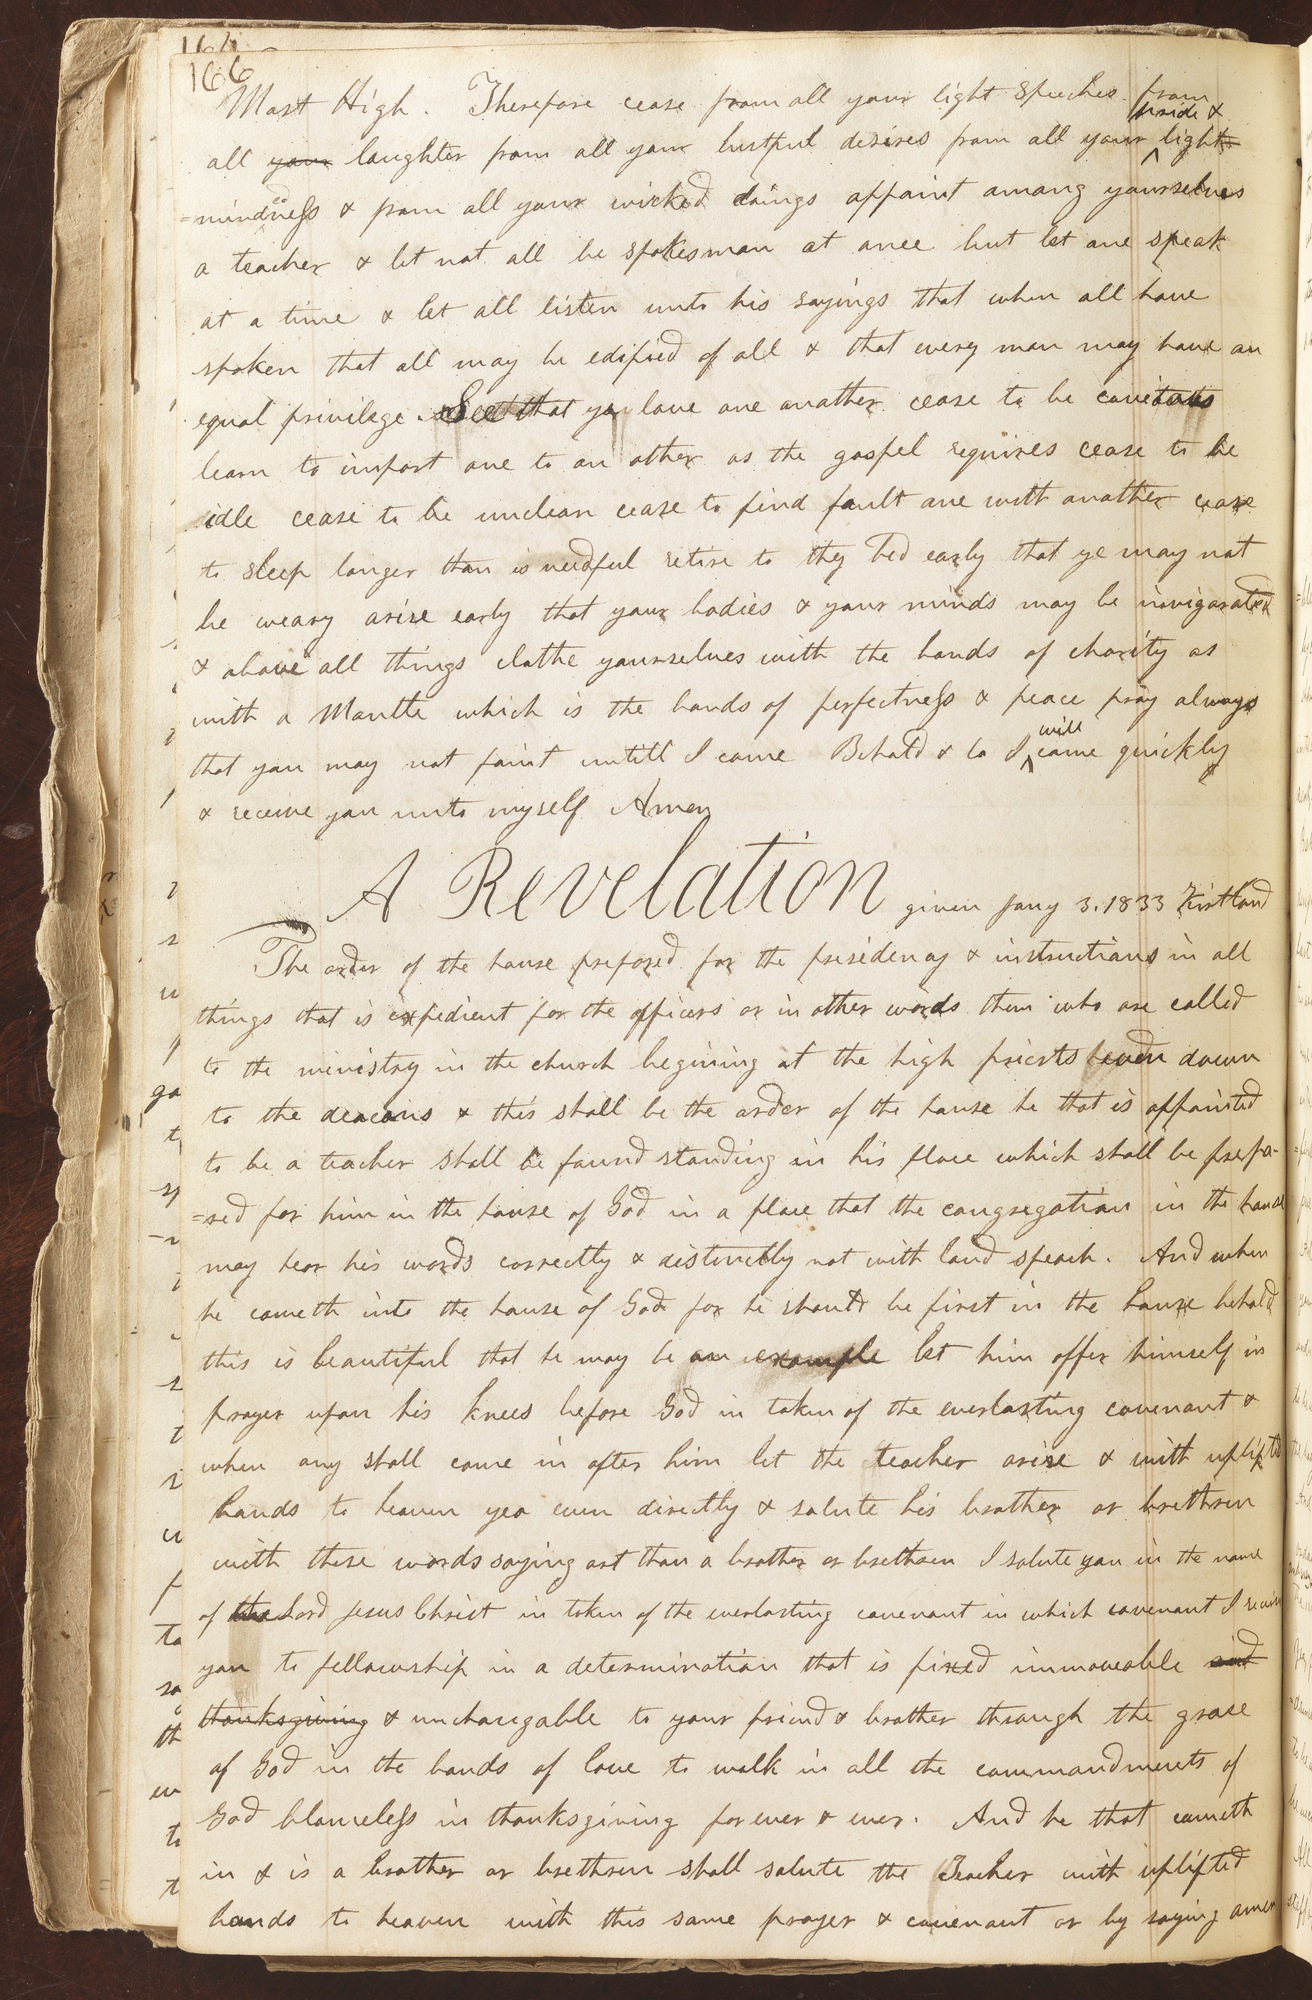 166
Most High. Therefore cease from all your light speeches from
all your laughter from all your lustful desires from all your pride & light-
=mindedness & from all your wicked doings appoint among yourselves
a teacher & let not all be spokesman at once but let one speak
at a time & let all listen unto his sayings that when all have
spoken that all may be edifised of all & that every man may have an
equal privilege. See that you love one another cease to be covitous
learn to impart one to an other as the gospel requires cease to be
idle cease to be unclean cease to find fault one with another cease
to sleep longer than is needful retire to thy bed early that ye may not
be weary arise early that your bodies & your minds may be invigorated
& above all things clothe yourselves with the bonds of charity as
with a Mantle which is the bonds of perfectness & peace pray always
that you may not faint untill I come Behold & lo I will come quickly
& receive you unto myself Amen
A Revelation given Jany 3. 1833 Kirtland
The order of the house prepared for the presidency & instructions in all
things that is expedient for the officers or in other words them who are called
to the ministry in the church begining at the high priests even down
to the deacons & this shall be the order of the house he that is appointed
to be a teacher shall be found standing in his place which shall be prepa-
=red for him in the house of God in a place that the congregation in the house
may hear his words correctly & distinctly not with loud speach. And when
he cometh into the house of God for he should be first in the house behold
this is beautiful that he may be an example let him offer himself in
prayer upon his knees before God in token of the everlasting covenant &
when any shall come in after him let the teacher arise & with uplifted
hands to heaven yea even directly & salute his brother or brethren
with these words saying art thou a brother or brethren I salute you in the name
of the Lord Jesus Christ in token of the everlasting covenant in which covenant I receive
you to fellowship in a determination that is fixed immoveable and
thanksgiving & unchangable to your friend & brother through the grace
of God in the bonds of love to walk in all the commandments of
God blameless in thanksgiving for ever & ever. And he that cometh
in & is a brother or brethren shall salute the Teacher with uplifted
hands to heaven with this same prayer & covenant or by saying amen